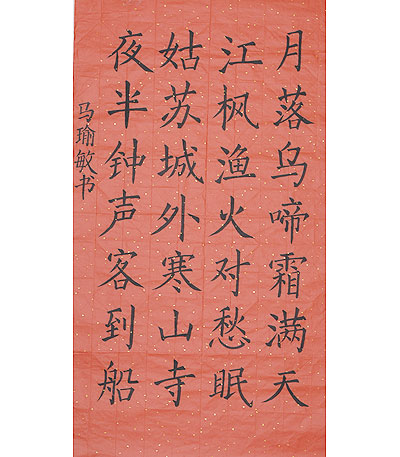 月落乌啼霜满天
江枫渔火对愁眠
姑苏城外寒山寺
夜半钟声客到船
马瑜敏书